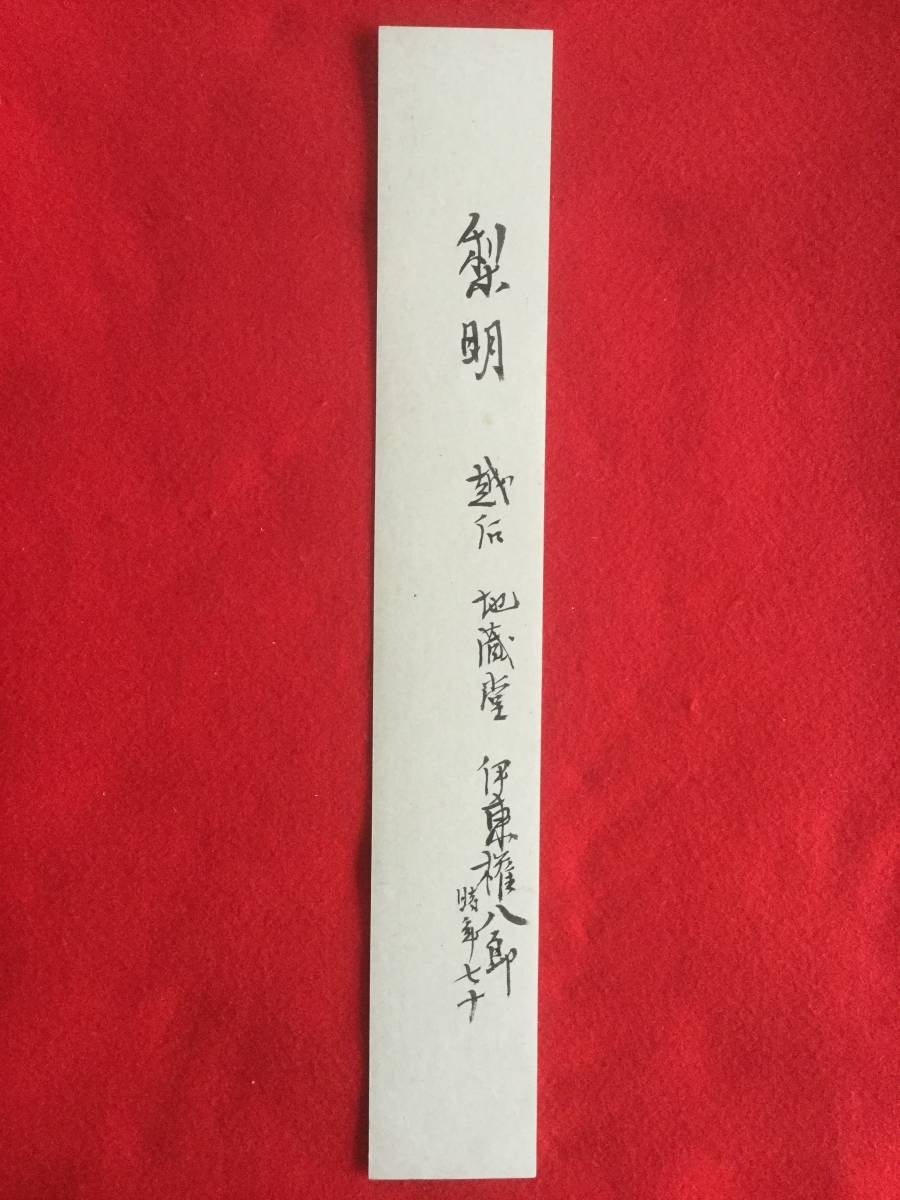 梨明 越后 地蔵堂 伊東権八郎
時年七十